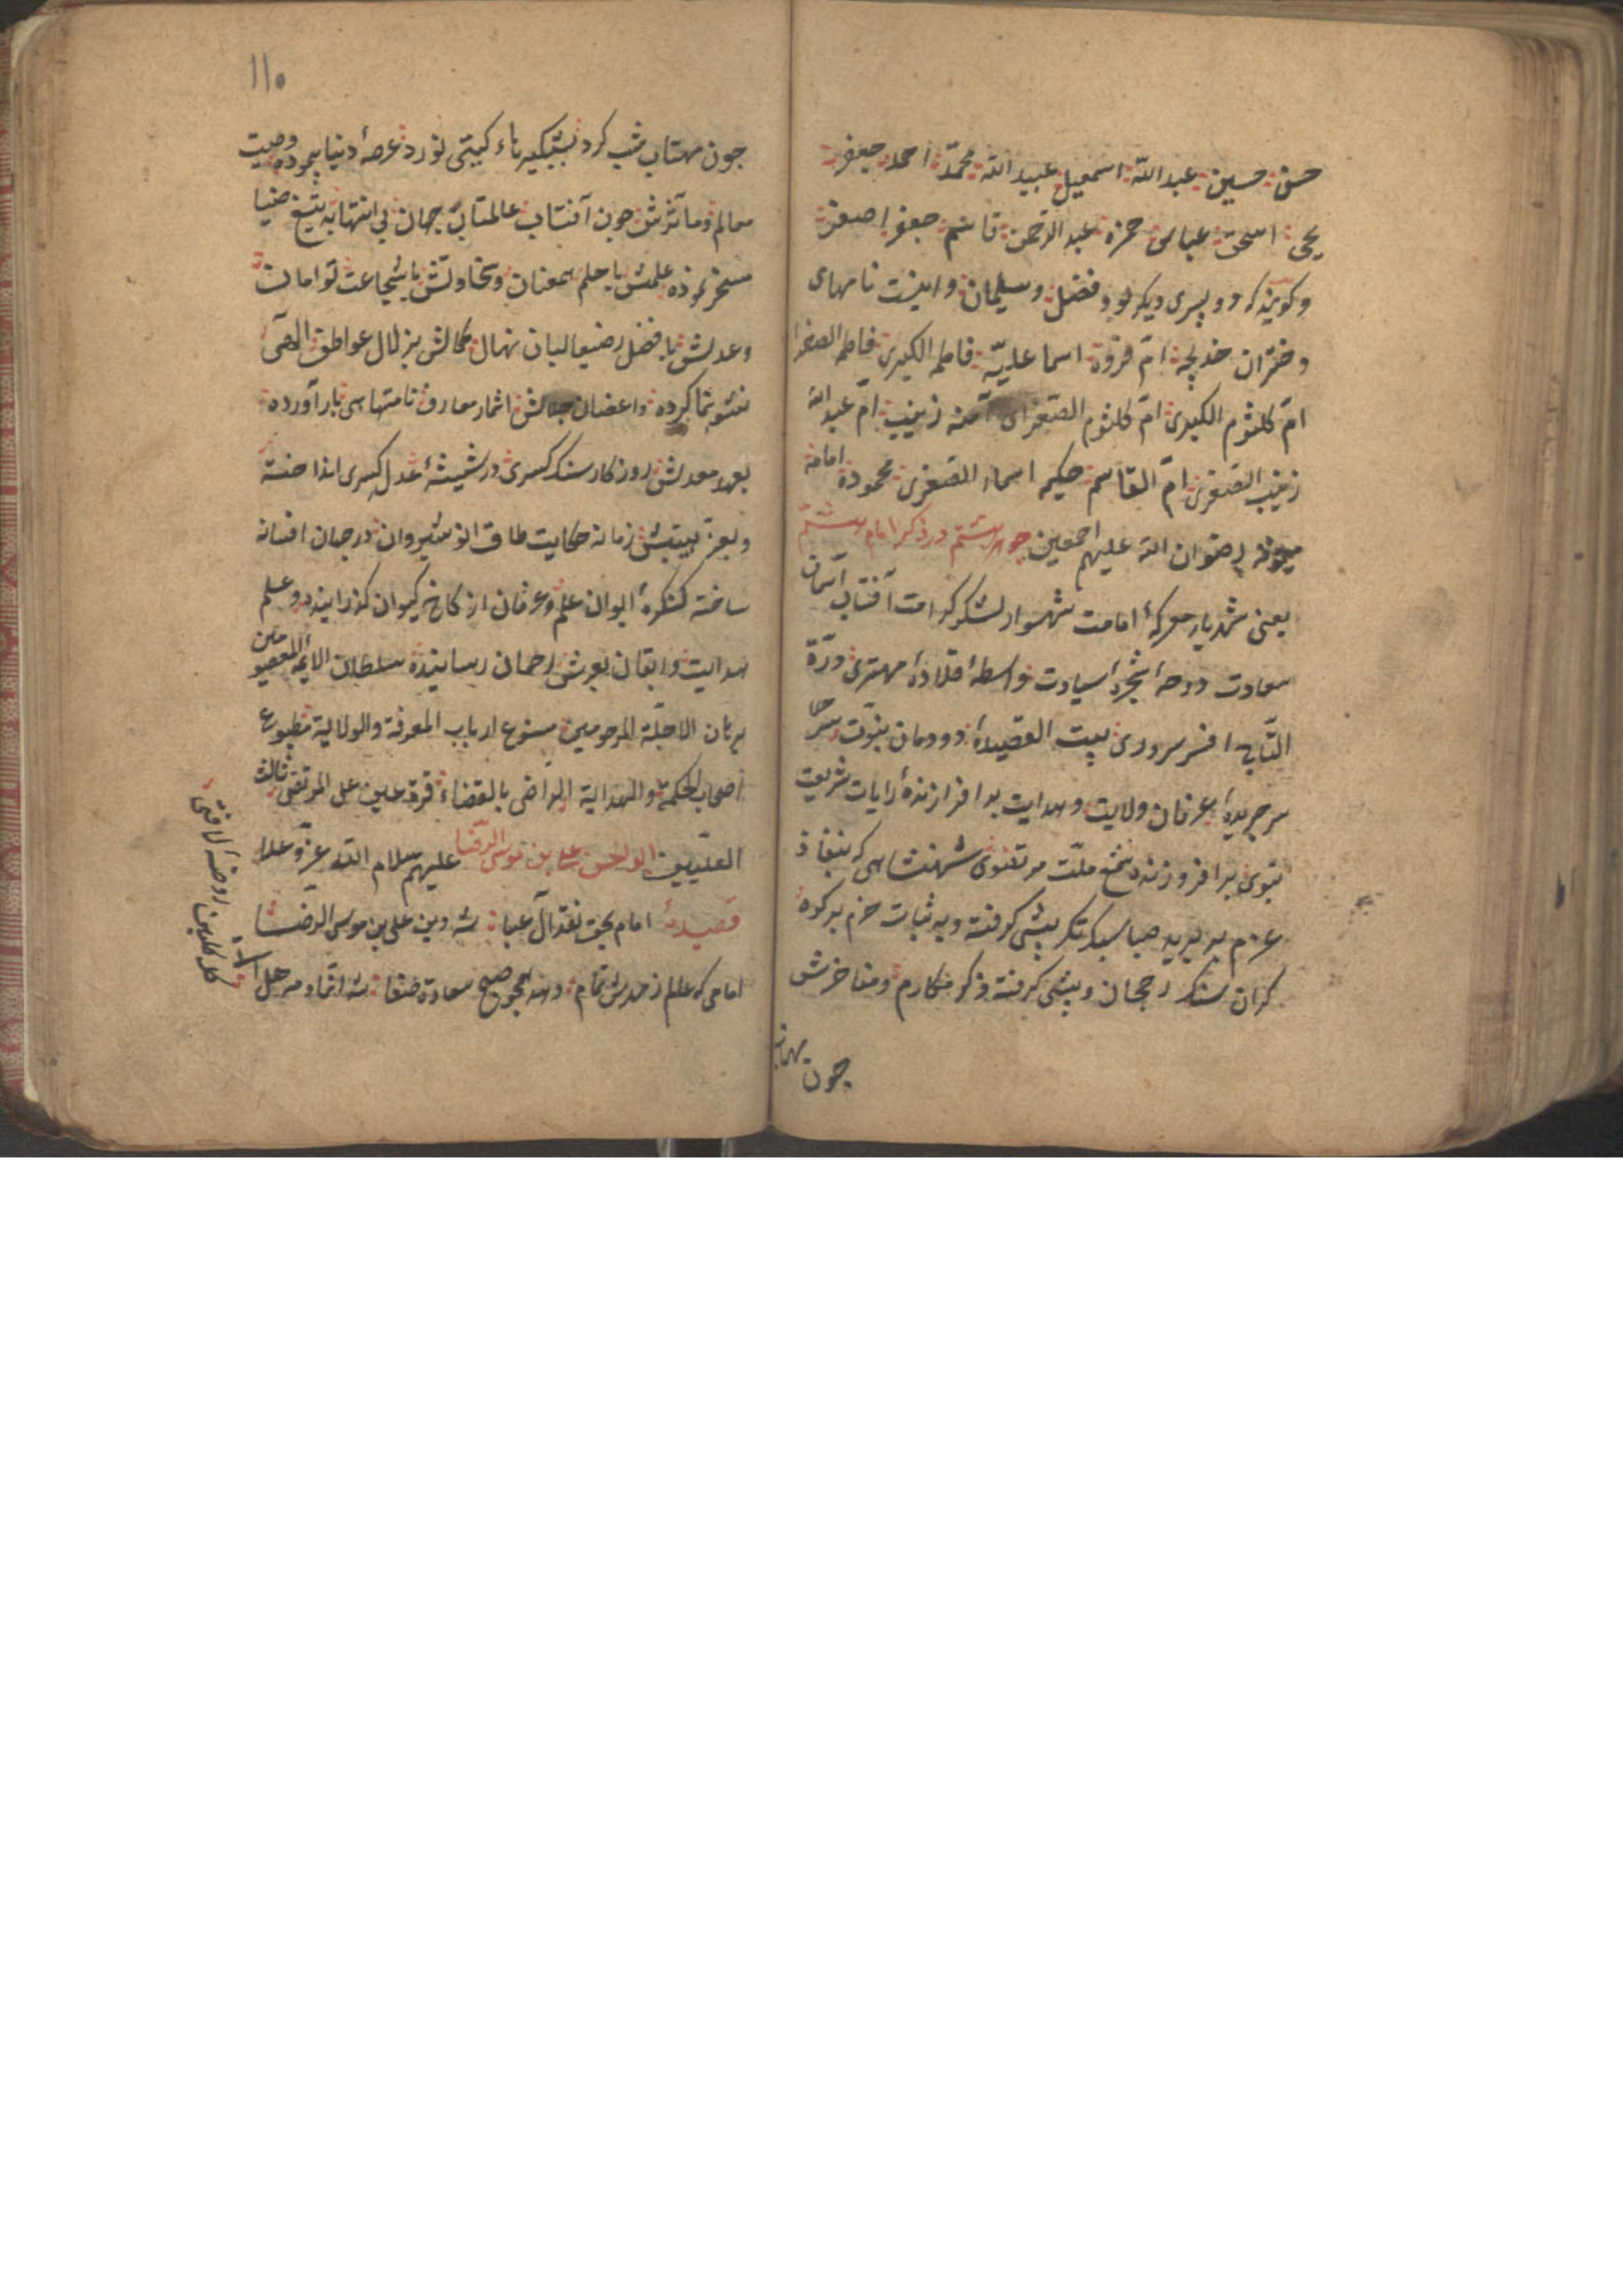 حسن حسین عبد الله اسمعیل عبید الله محمّد احمد جعفر
یحی اسحق عباس حمزه عبد الرحمن قاسم جعفر اصغر
و کویند که دو پسری دیکر بود فضل و سلیمان و اینست نامهای
دختران خدیجة امّ فروة اسما علیّه فاطمه الکبری فاطمه الصغرا
امّ کلثوم الکبری امّ کلثوم الصغرای آمنه زینب امّ عبد الله
زینب الصغری امّ القاسم حکیمه اسماء الصغری محموده امامه
میمونه رضوان الله علیهم اجمعین جوهر هشتم در ذکر امام هشتم
یعنی شهریار معرکهٔ امامت شهسوار لشکر کرامت آفتاب آسمان
سعادت دوحهٔ شجرهٔ سیادت واسطهٔ قلادهٔ مهتری درّة
التاج افسر سروری بیت القصیدهٔ دودمان نبوّت
سر جریدهٔ عرفان ولایت و هدایت بر افرازندهٔ رایات شریعت
نبوی بر افروزنده شمع ملّت مرتضوی شهنشاهی که بنفاذ
عزم بر برید صبا سبک تک پیشی کرفته و به ثبات حزم بر کوه
کران سنک رجحان و بیشی کرفته ذکر مکارم و مفاخرش
چون مهتاب
۱۱۰
جون مهتاب شب کرد بشبکیر ناء کیتی نورد عرصهٔ دنیا پیموده وصیت
معالم و مآثرش جون آفتاب عالمتاب جهان بی انتها به تیغ ضیا
مسخر نموده علمش با حلم همعنان و سخاوتش با شجاعت توامان
و عدلش با فضل رضیعا لبان نهال کمالش بزلال عواطف الهی
نشو نما کرده و اغصان جمالش اثمار معارف نامتناهی بار آورده
بعهد معدلش روزکار سنک کسری در شیشهٔ عدل کسری انداخته
و بعز هیبتش زمانه حکایت طاق انوشیروان در جهان افسانه
ساخته کنکرهٔ ایوان علم و عرفان از کاخ کیوان کذرانیده و علم
هدایت و ایقان بعرش رحمان رسانیده سلطان الائمه المعصومین
برهان الاجلّة المرحومین متبوع ارباب المعرفة والولایة مطبوع
اصحاب الحکمة والهدایة الراضی بالقضاء قرة عین علی المرتضی ثالث
العلیّین ابو الحسن علی بن موسی الرضا علیهم سلام الله عزّ و علا
قصیده امام بحق نقد آل عبا شه دین علی بن موسی الرضا
امامی که علم ز حدش تمام